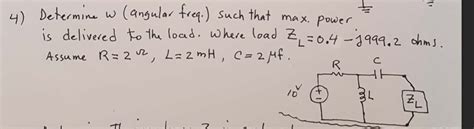 4) Determine w (angular freq.) such that max. power
is delivered to the load. Where load Z_L = 0.4 - j999.2 ohms.
Assume R = 2 Ω, L = 2 mH, C = 2 μf.
R C
10 V + - L Z_L